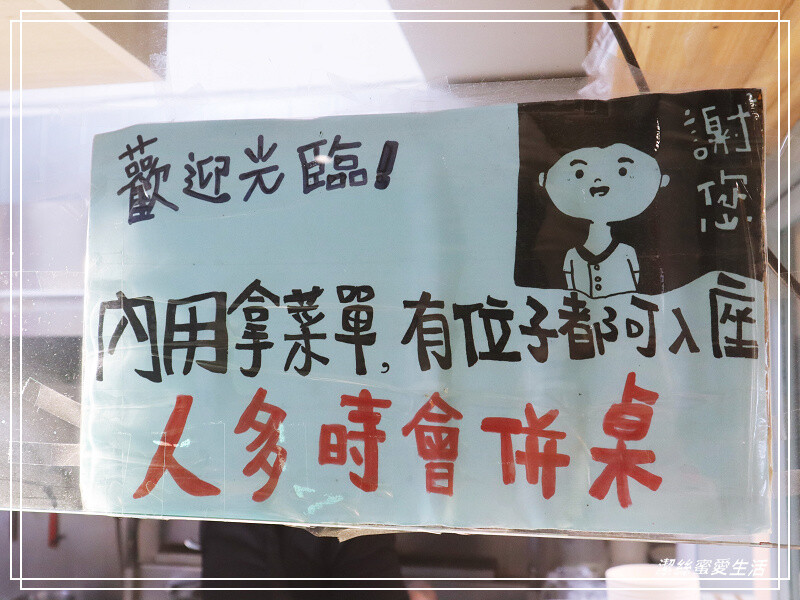 歡迎光臨!
謝您
內用拿菜單,有位子都可入座
人多時會併桌
潔絲蜜愛生活